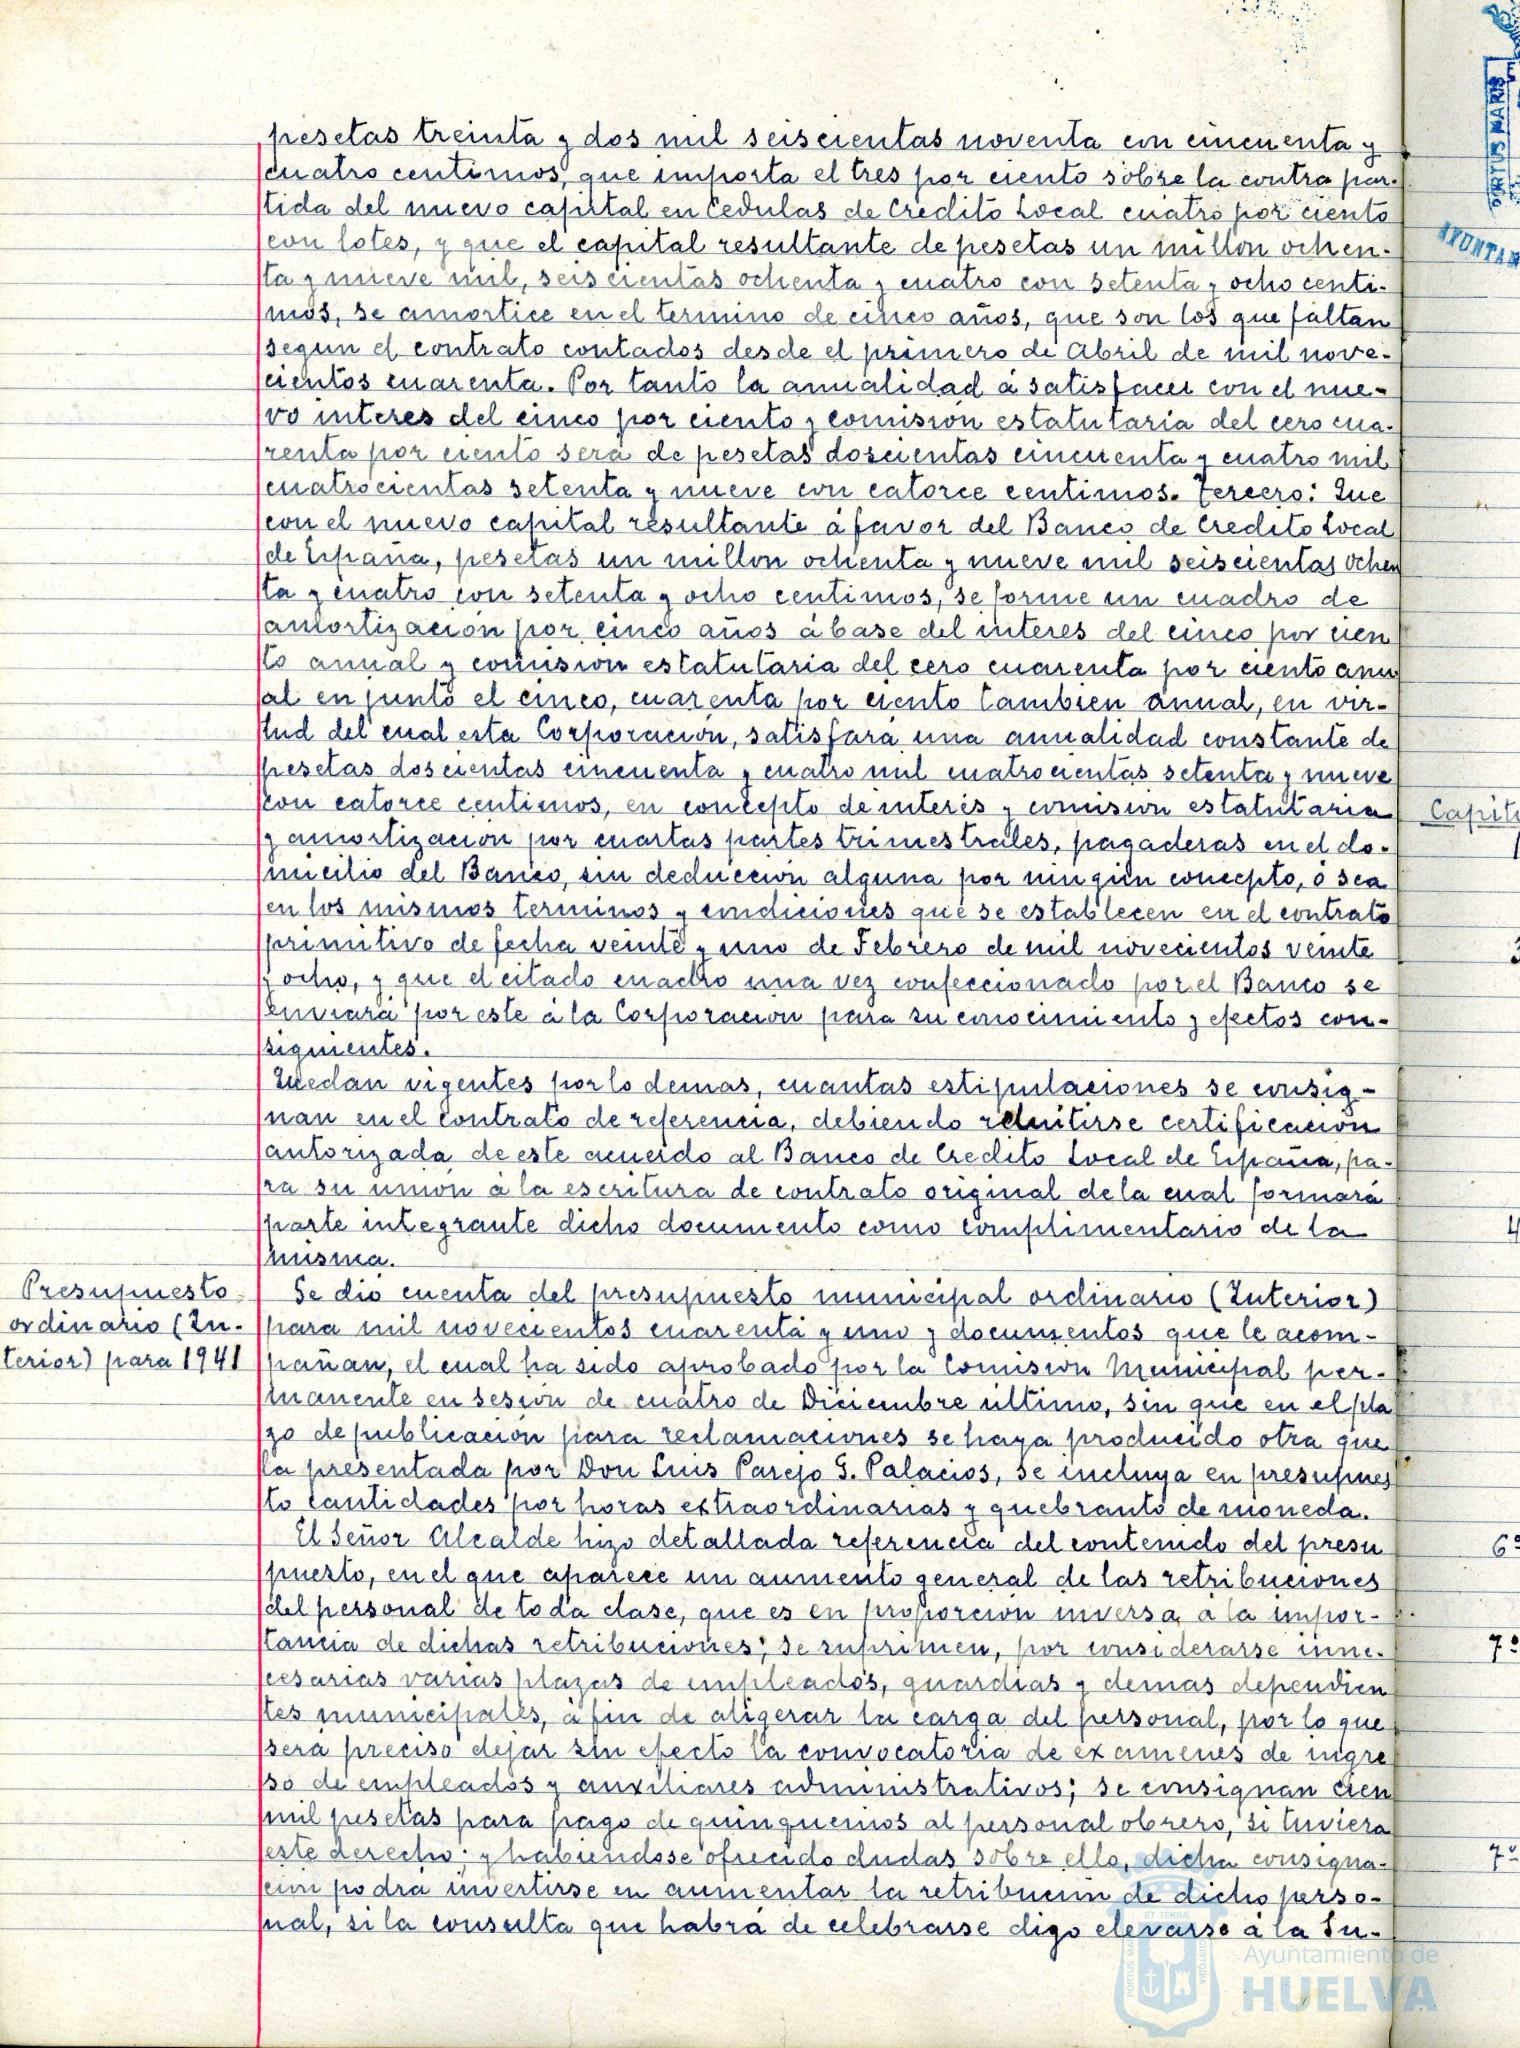 pesetas treinta y dos mil seiscientas noventa con cincuenta y
cuatro centimos, que importa el tres por ciento sobre la contra par-
tida del nuevo capital en Cedulas de Credito Local cuatro por ciento
con lotes, y que el capital resultante de pesetas un millon ochen-
ta y nueve mil, seiscientas ochenta y cuatro con setenta y ocho centi-
mos, se amortice en el termino de cinco años, que son los que faltan
segun el contrato contados desde el primero de Abril de mil nove-
cientos cuarenta. Por tanto la anualidad á satisfacer con el nue-
vo interes del cinco por ciento y comisión estatutaria del cero cua-
renta por ciento será de pesetas doscientas cincuenta y cuatro mil
cuatrocientas setenta y nueve con catorce centimos. Tercero: Que
con el nuevo capital resultante á favor del Banco de Credito Local
de España, pesetas un millon ochenta y nueve mil seiscientas ochen
ta y cuatro con setenta y ocho centimos, se forme un cuadro de
amortización por cinco años á base del interes del cinco por cien
to anual y comision estatutaria del cero cuarenta por ciento anu
al en junto el cinco, cuarenta por ciento tambien anual, en vir-
tud del cual esta Corporación, satisfará una anualidad constante de
pesetas doscientas cincuenta y cuatro mil cuatrocientas setenta y nueve
con catorce centimos, en concepto de interés y comision estatutaria
y amortización por cuartas partes trimestrales, pagaderas en el do-
micilio del Banco, sin deducción alguna por ningún concepto, ó sea
en los mismos terminos y condiciones que se establecen en el contrato
primitivo de fecha veinte y uno de Febrero de mil novecientos veinte
y ocho, y que el citado cuadro una vez confeccionado por el Banco se
enviará por este á la Corporación para su conocimiento y efectos con-
siguientes.
Quedan vigentes por lo demas, cuantas estipulaciones se consig-
nan en el contrato de referencia, debiendo remitirse certificación
autorizada de este acuerdo al Banco de Credito Local de España, pa-
ra su unión á la escritura de contrato original de la cual formará
parte integrante dicho documento como complimentario de la
misma.
Presupuesto
ordinario (In-
terior) para 1941
Se dió cuenta del presupuesto municipal ordinario (Interior)
para mil novecientos cuarenta y uno y documentos que le acom-
pañan, el cual ha sido aprobado por la Comision Municipal per-
manente en sesión de cuatro de Diciembre último, sin que en el pla
zo de publicación para reclamaciones se haya producido otra que
la presentada por Don Luis Parejo G. Palacios, se incluya en presupues
to cantidades por horas extraordinarias y quebranto de moneda.
El Señor Alcalde hizo detallada referencia del contenido del presu
puesto, en el que aparece un aumento general de las retribuciones
del personal de toda clase, que es en proporción inversa á la impor-
tancia de dichas retribuciones; se suprimen, por considerarse inne-
cesarias varias plazas de empleados, guardias y demas dependien
tes municipales, á fin de aligerar la carga del personal, por lo que
será preciso dejar sin efecto la convocatoria de examenes de ingre
so de empleados y auxiliares administrativos; se consignan cien
mil pesetas para pago de quinquenios al personal obrero, si tuviera
este derecho; y habiendose ofrecido dudas sobre ello, dicha consigna-
ción podrá invertirse en aumentar la retribución de dicho perso-
nal, si la consulta que habrá de celebrarse digo elevarse á la Su-
PORTUS MARIS
AYUNTAM
Capitu
1
3
4
6º
7º
7º
Ayuntamiento de
HUELVA